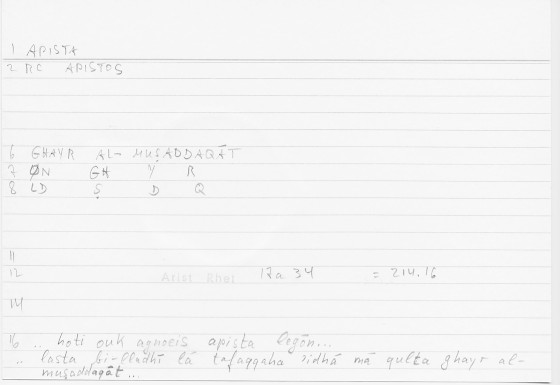 1 APISTA
2 RC APISTOS
6 GHAYR AL- MUṢADDAQĀT
7 ØN GH Y R
8 LD Ṣ D Q
11
12 Arist Rhet 17a 34 = 214.16
14
16 .. hoti ouk agnoeis apista legōn...
.. lasta bi-lladhī lā tafaqqaha 'idhā mā qulta ghayr al-
muṣaddaqāt...